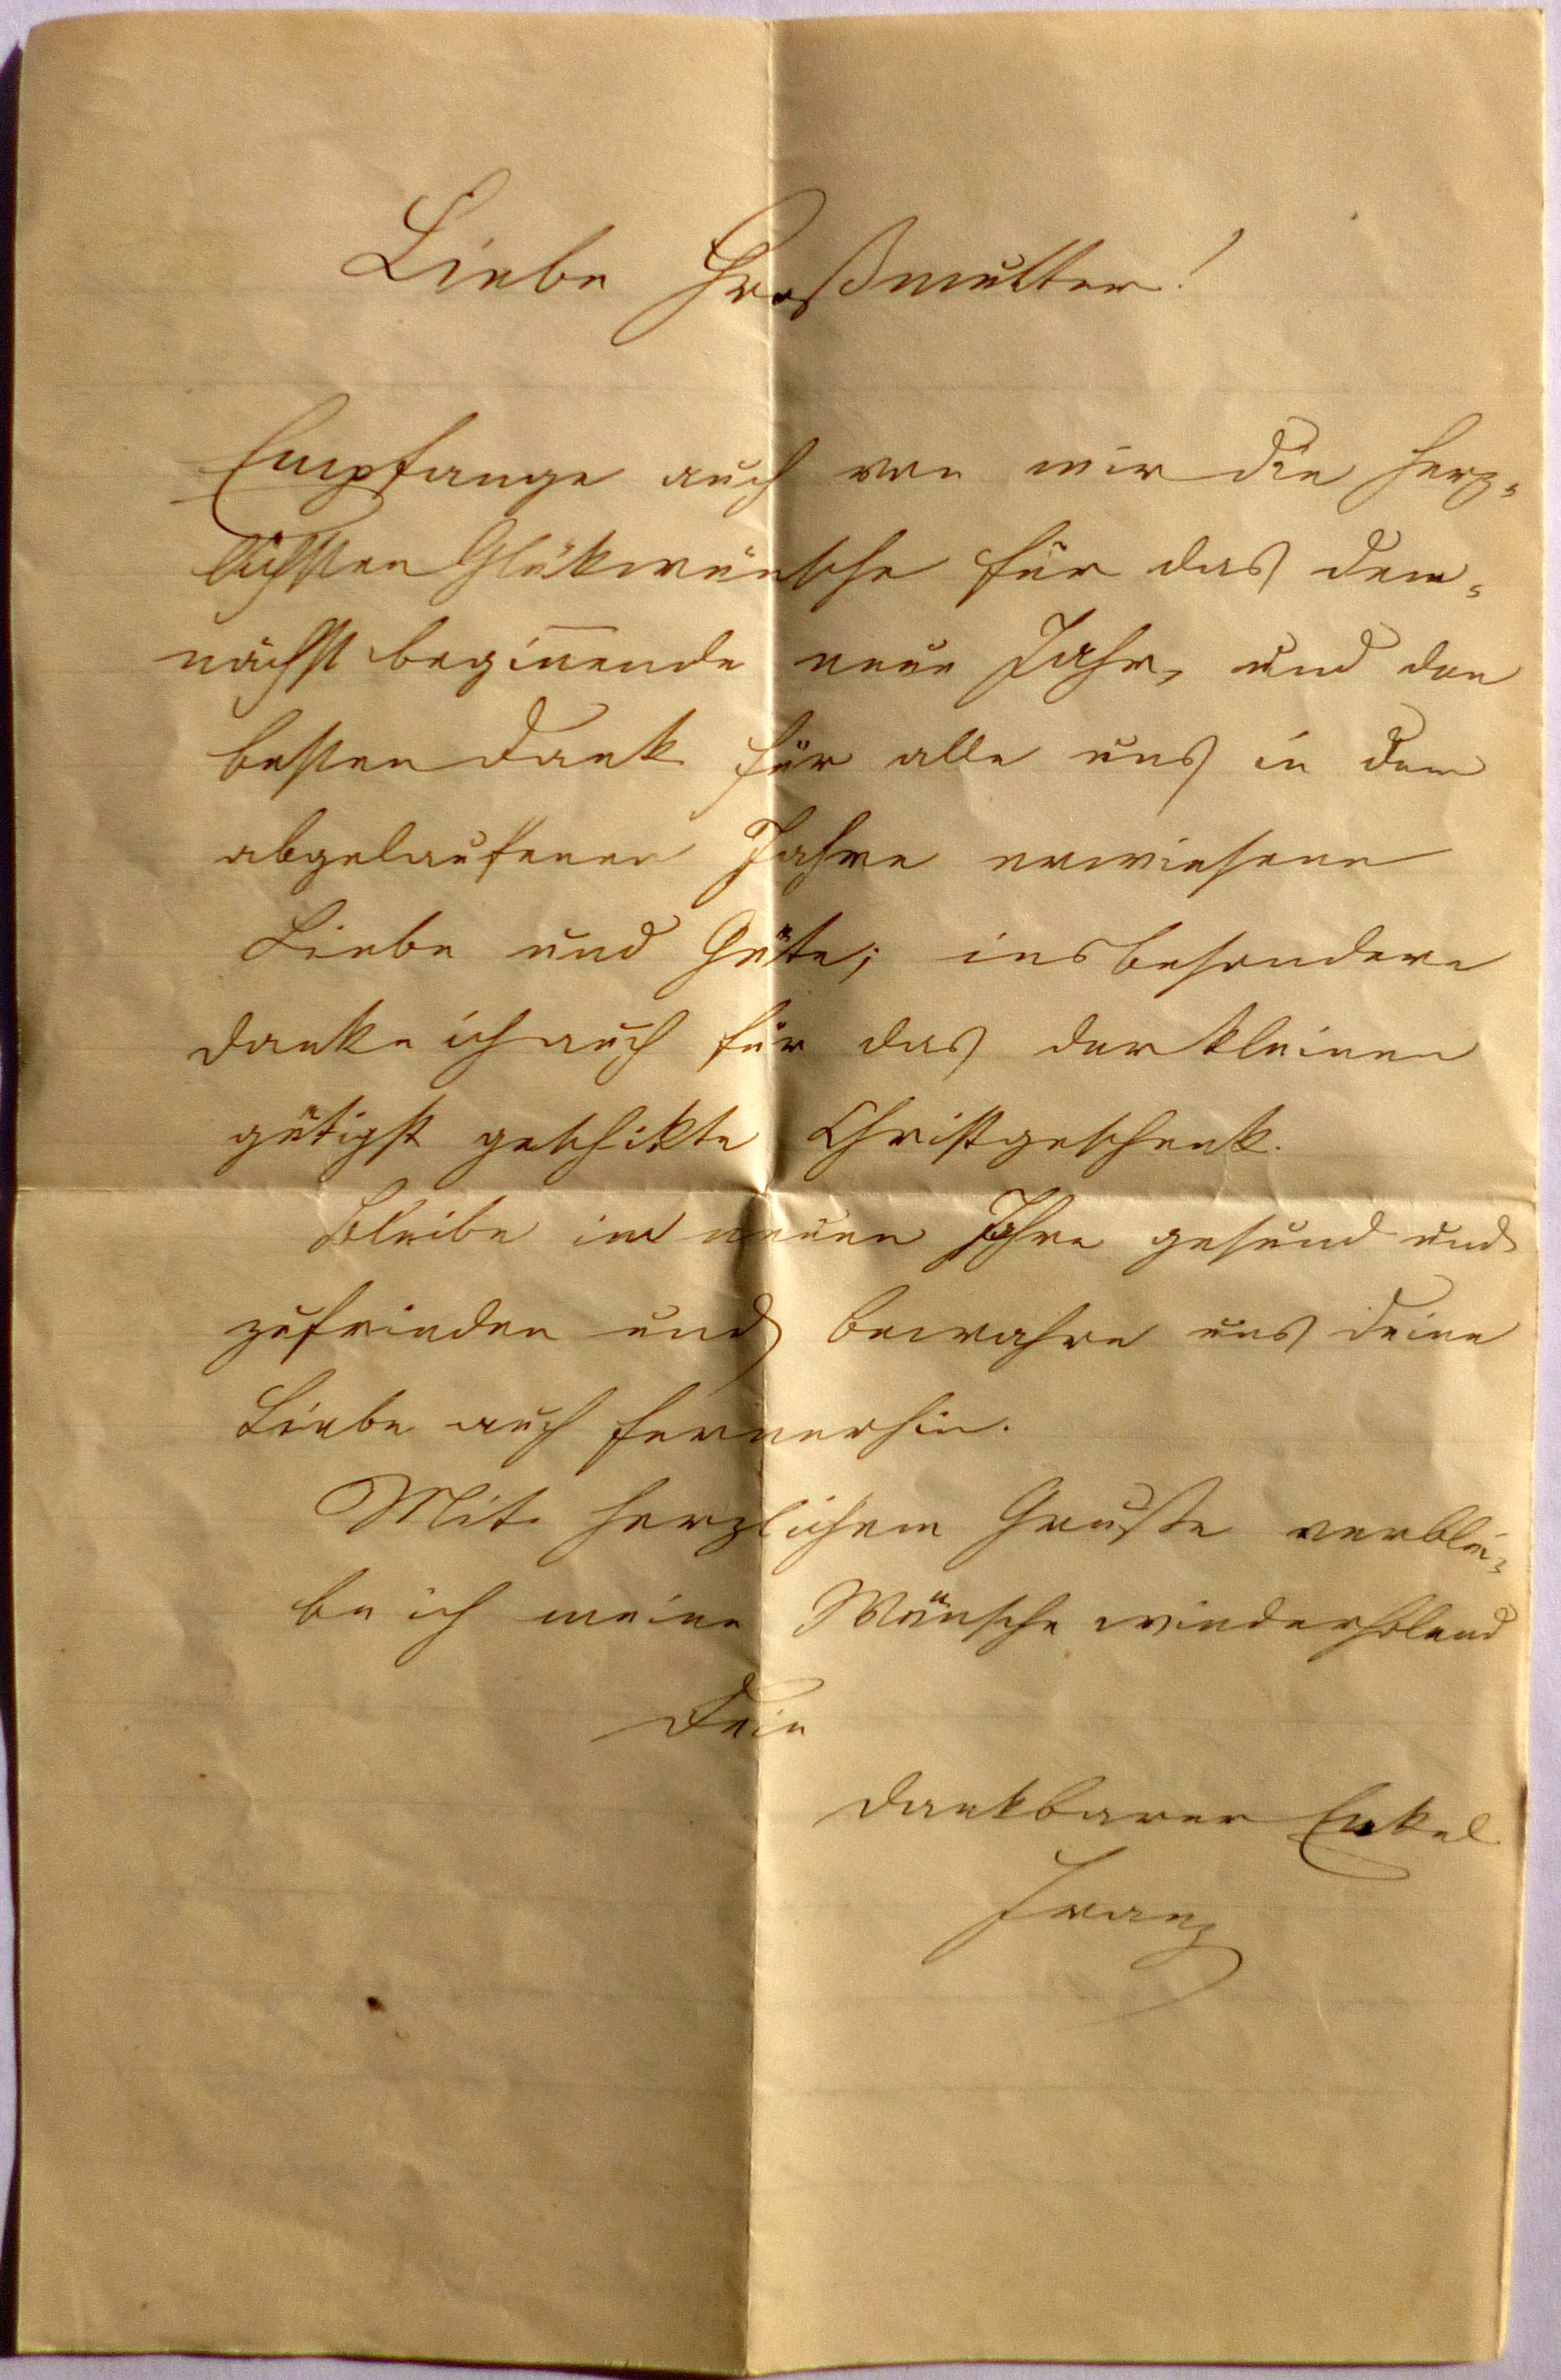 Liebe Großmutter!
Empfange auch von mir die herz-
lichsten Glükwünsche für das dem-
nächst begin̄ende neue Jahr, und den
besten Dank für alle uns in dem
abgelaufenen Jahre erwiesene
Liebe und Güte; insbesondere
danke ich auch für das der kleinen
gütigst geschikte Christgeschenk.
Bleibe im neuen Jahre gesund und
zufrieden und bewahre uns deine
Liebe auch fernerhin.
Mit herzlichem Gruße verblei-
be ich meine Wünsche wiederholend
Dein
dankbarer Enkel
Franz